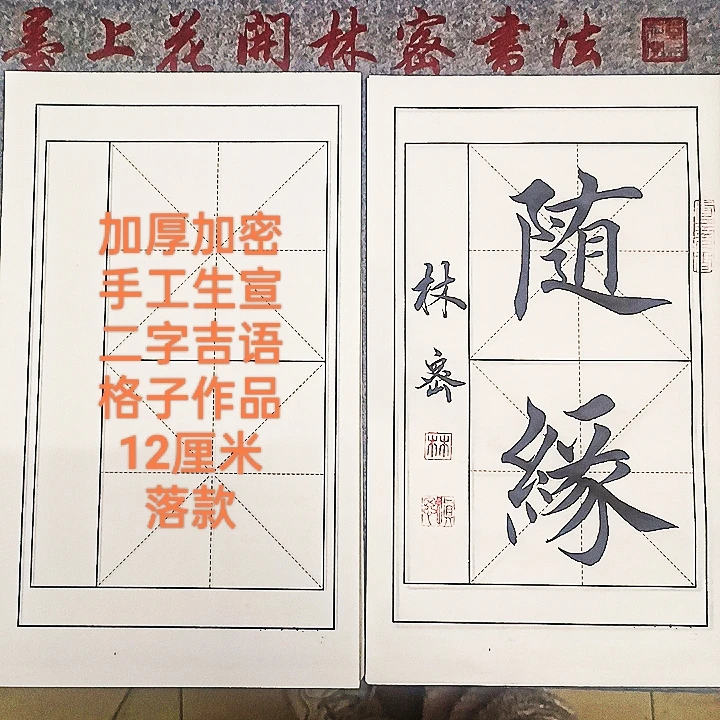 墨上花開林密書法
加厚加密
手工生宣
二字吉语
格子作品
12厘米
落款
随
縁
林密
林